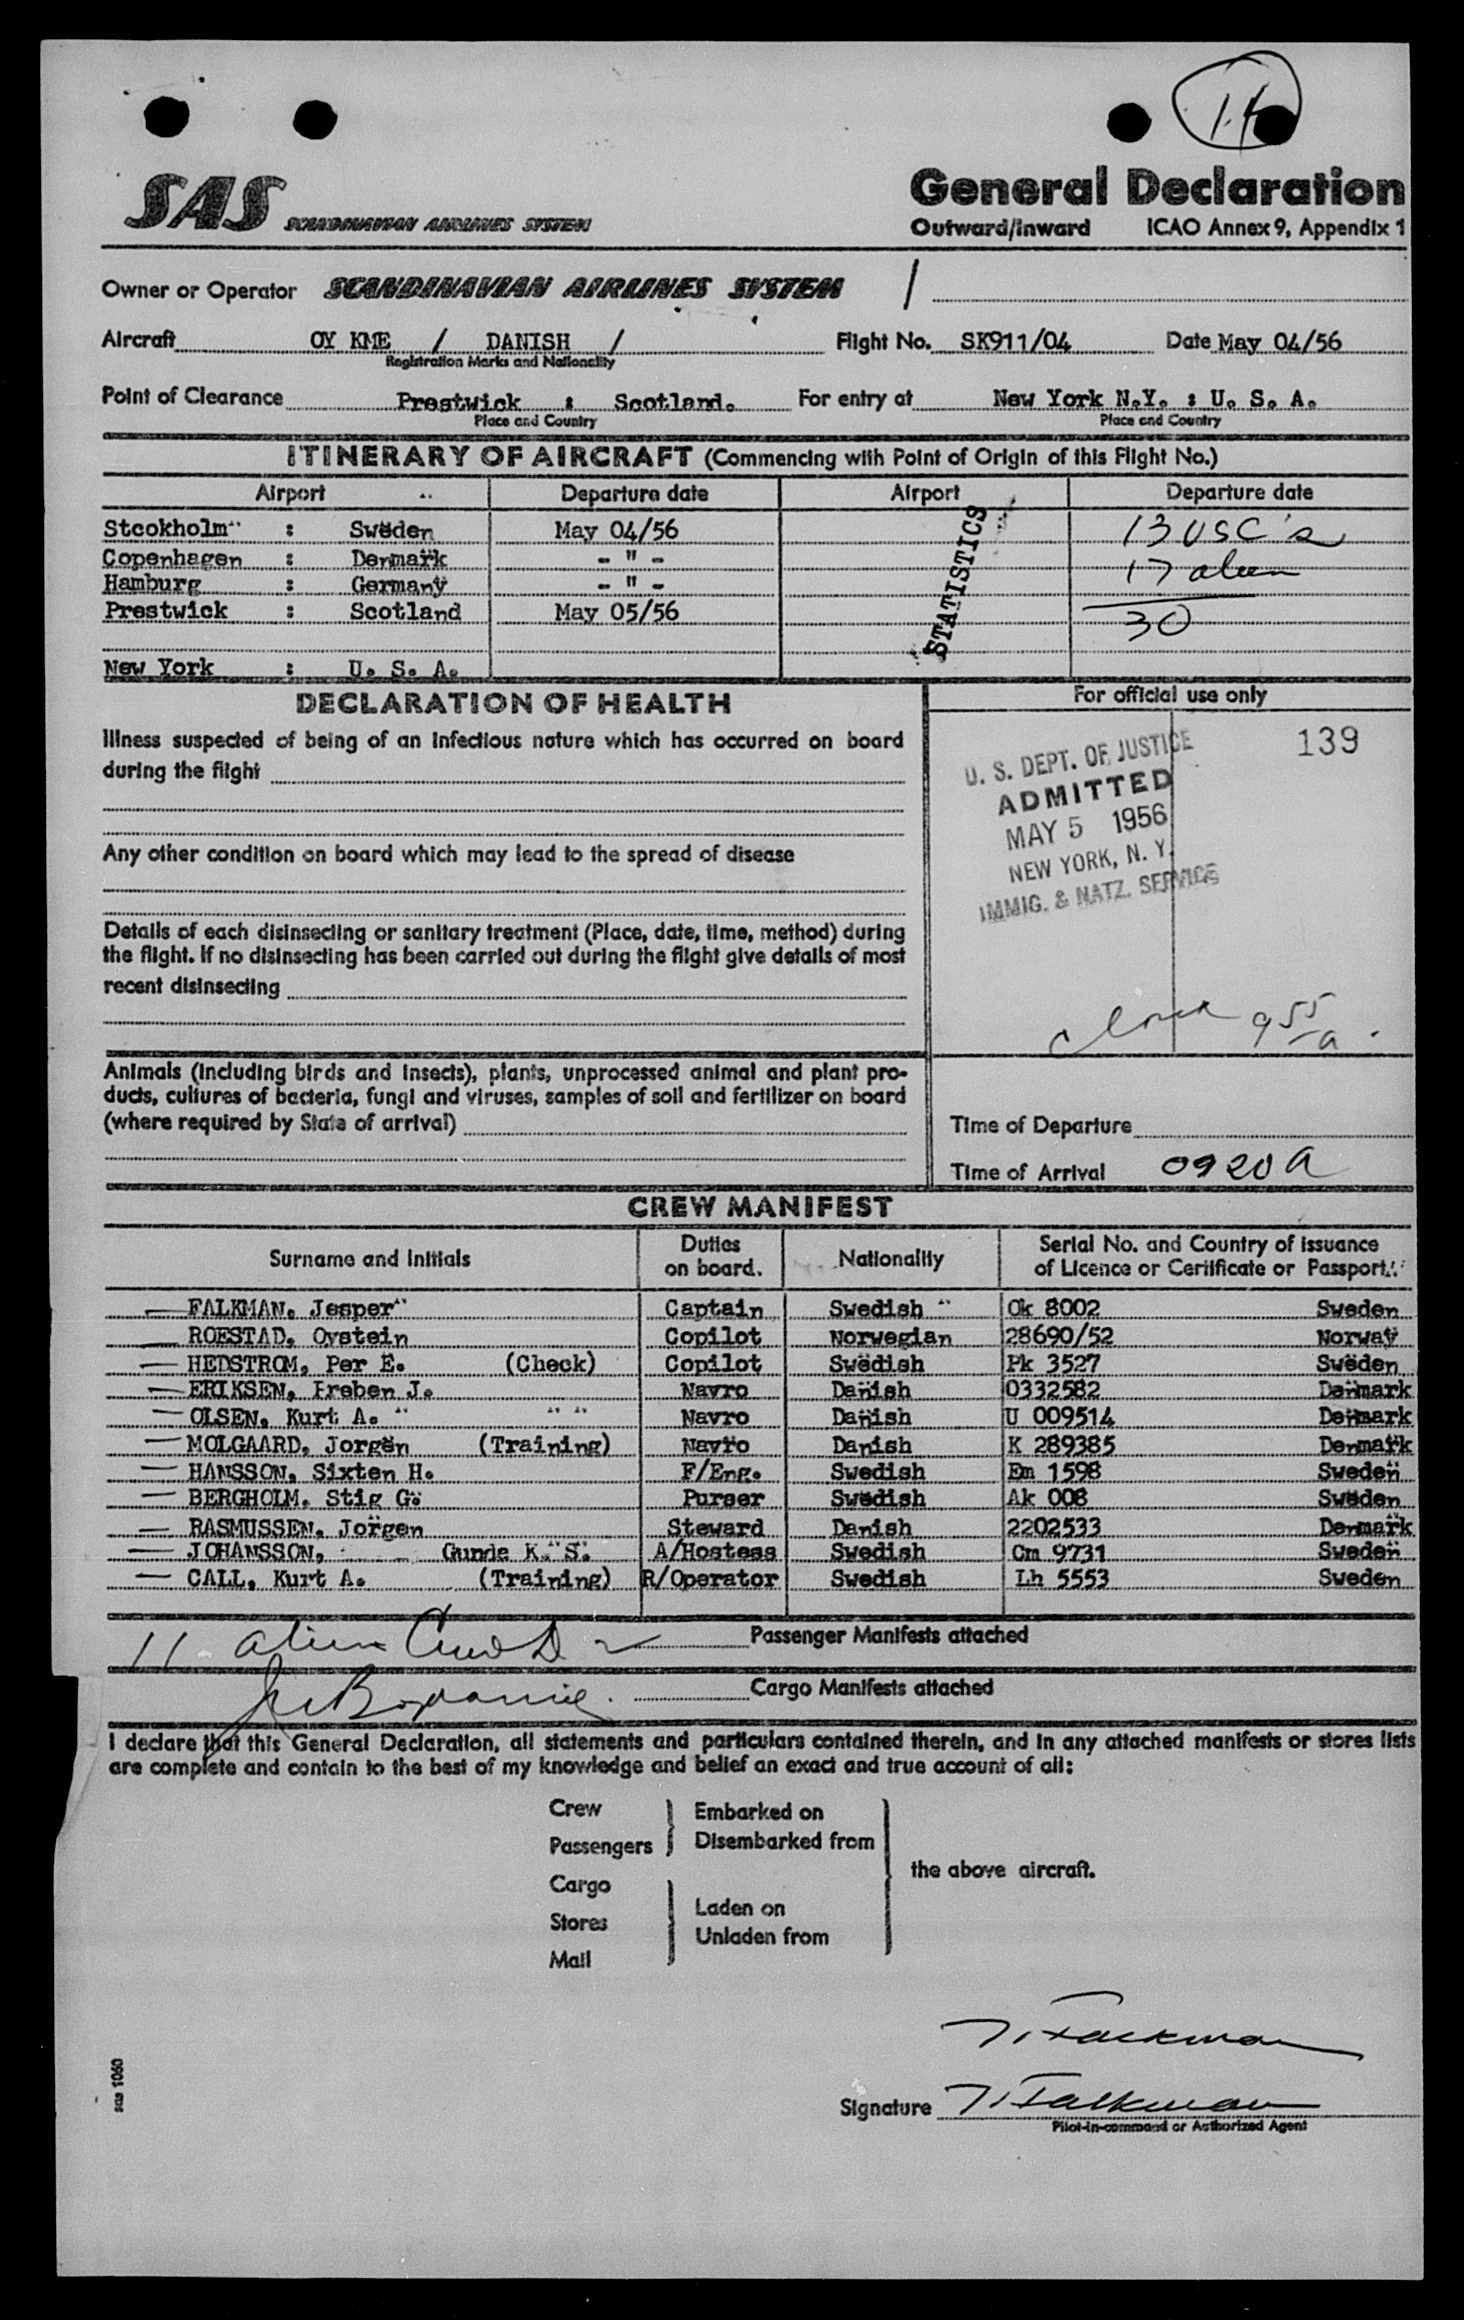 14
SAS SCANDINAVIAN AIRLINES SYSTEM
General Declaration
Outward/Inward ICAO Annex 9, Appendix 1
Owner or Operator SCANDINAVIAN AIRLINES SYSTEM /
Aircraft OY KME / DANISH / Flight No. SK911/04 Date May 04/56
Registration Marks and Nationality
Point of Clearance Prestwick : Scotland. For entry at New York N.Y. : U. S. A.
Place and Country Place and Country
ITINERARY OF AIRCRAFT (Commencing with Point of Origin of this Flight No.)
Airport Departure date Airport Departure date
Stcokholm : Sweden May 04/56 13 USC's
Copenhagen : Denmark - " - 17 alien
Hamburg : Germany - " -
Prestwick : Scotland May 05/56 30
New York : U. S. A.
STATISTICS
DECLARATION OF HEALTH
For official use only
Illness suspected of being of an infectious nature which has occurred on board
during the flight
139
U. S. DEPT. OF JUSTICE
ADMITTED
MAY 5 1956
NEW YORK, N. Y.
IMMIG. & NATZ. SERVICE
Any other condition on board which may lead to the spread of disease
Details of each disinsecting or sanitary treatment (Place, date, time, method) during
the flight. If no disinsecting has been carried out during the flight give details of most
recent disinsecting
955 a
Animals (including birds and insects), plants, unprocessed animal and plant pro-
ducts, cultures of bacteria, fungi and viruses, samples of soil and fertilizer on board
(where required by State of arrival)
Time of Departure
Time of Arrival 0920 A
CREW MANIFEST
Surname and Initials Duties on board. Nationality Serial No. and Country of issuance of Licence or Certificate or Passport.
FALKMAN, Jesper Captain Swedish Ok 8002 Sweden
ROESTAD, Oystein Copilot Norwegian 28690/52 Norway
HEDSTROM, Per E. (Check) Copilot Swedish Pk 3527 Sweden
ERIKSEN, Preben J. Navro Danish 0332582 Denmark
OLSEN, Kurt A. Navro Danish U 009514 Denmark
MOLGAARD, Jorgen (Training) Navro Danish K 289385 Denmark
HANSSON, Sixten H. F/Eng. Swedish Em 1598 Sweden
BERGHOLM, Stig G. Purser Swedish Ak 008 Sweden
RASMUSSEN, Jorgen Steward Danish 2202533 Denmark
JOHANSSON, Gunde K. S. A/Hostess Swedish Cm 9731 Sweden
CALL, Kurt A. (Training) R/Operator Swedish Lh 5553 Sweden
11 alien Passenger Manifests attached
Cargo Manifests attached
I declare that this General Declaration, all statements and particulars contained therein, and in any attached manifests or stores lists
are complete and contain to the best of my knowledge and belief an exact and true account of all:
Crew
Passengers
Embarked on
Disembarked from
Cargo
Stores
Mail
Laden on
Unladen from
the above aircraft.
J. Falkman
Signature J. Falkman
Pilot-in-command or Authorized Agent
sas 1060